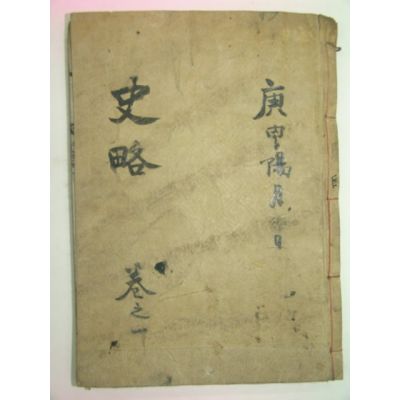 庚申陽月 日
史略
卷之一